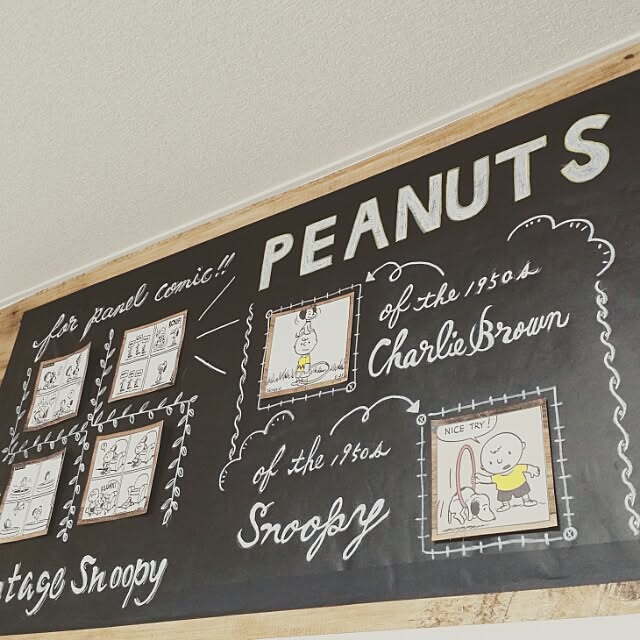 PEANUTS
for panel comic!!
BOO!!
of the 1950s
Charlie Brown
of the 1950s
Snoopy
NICE TRY!
tage Snoopy